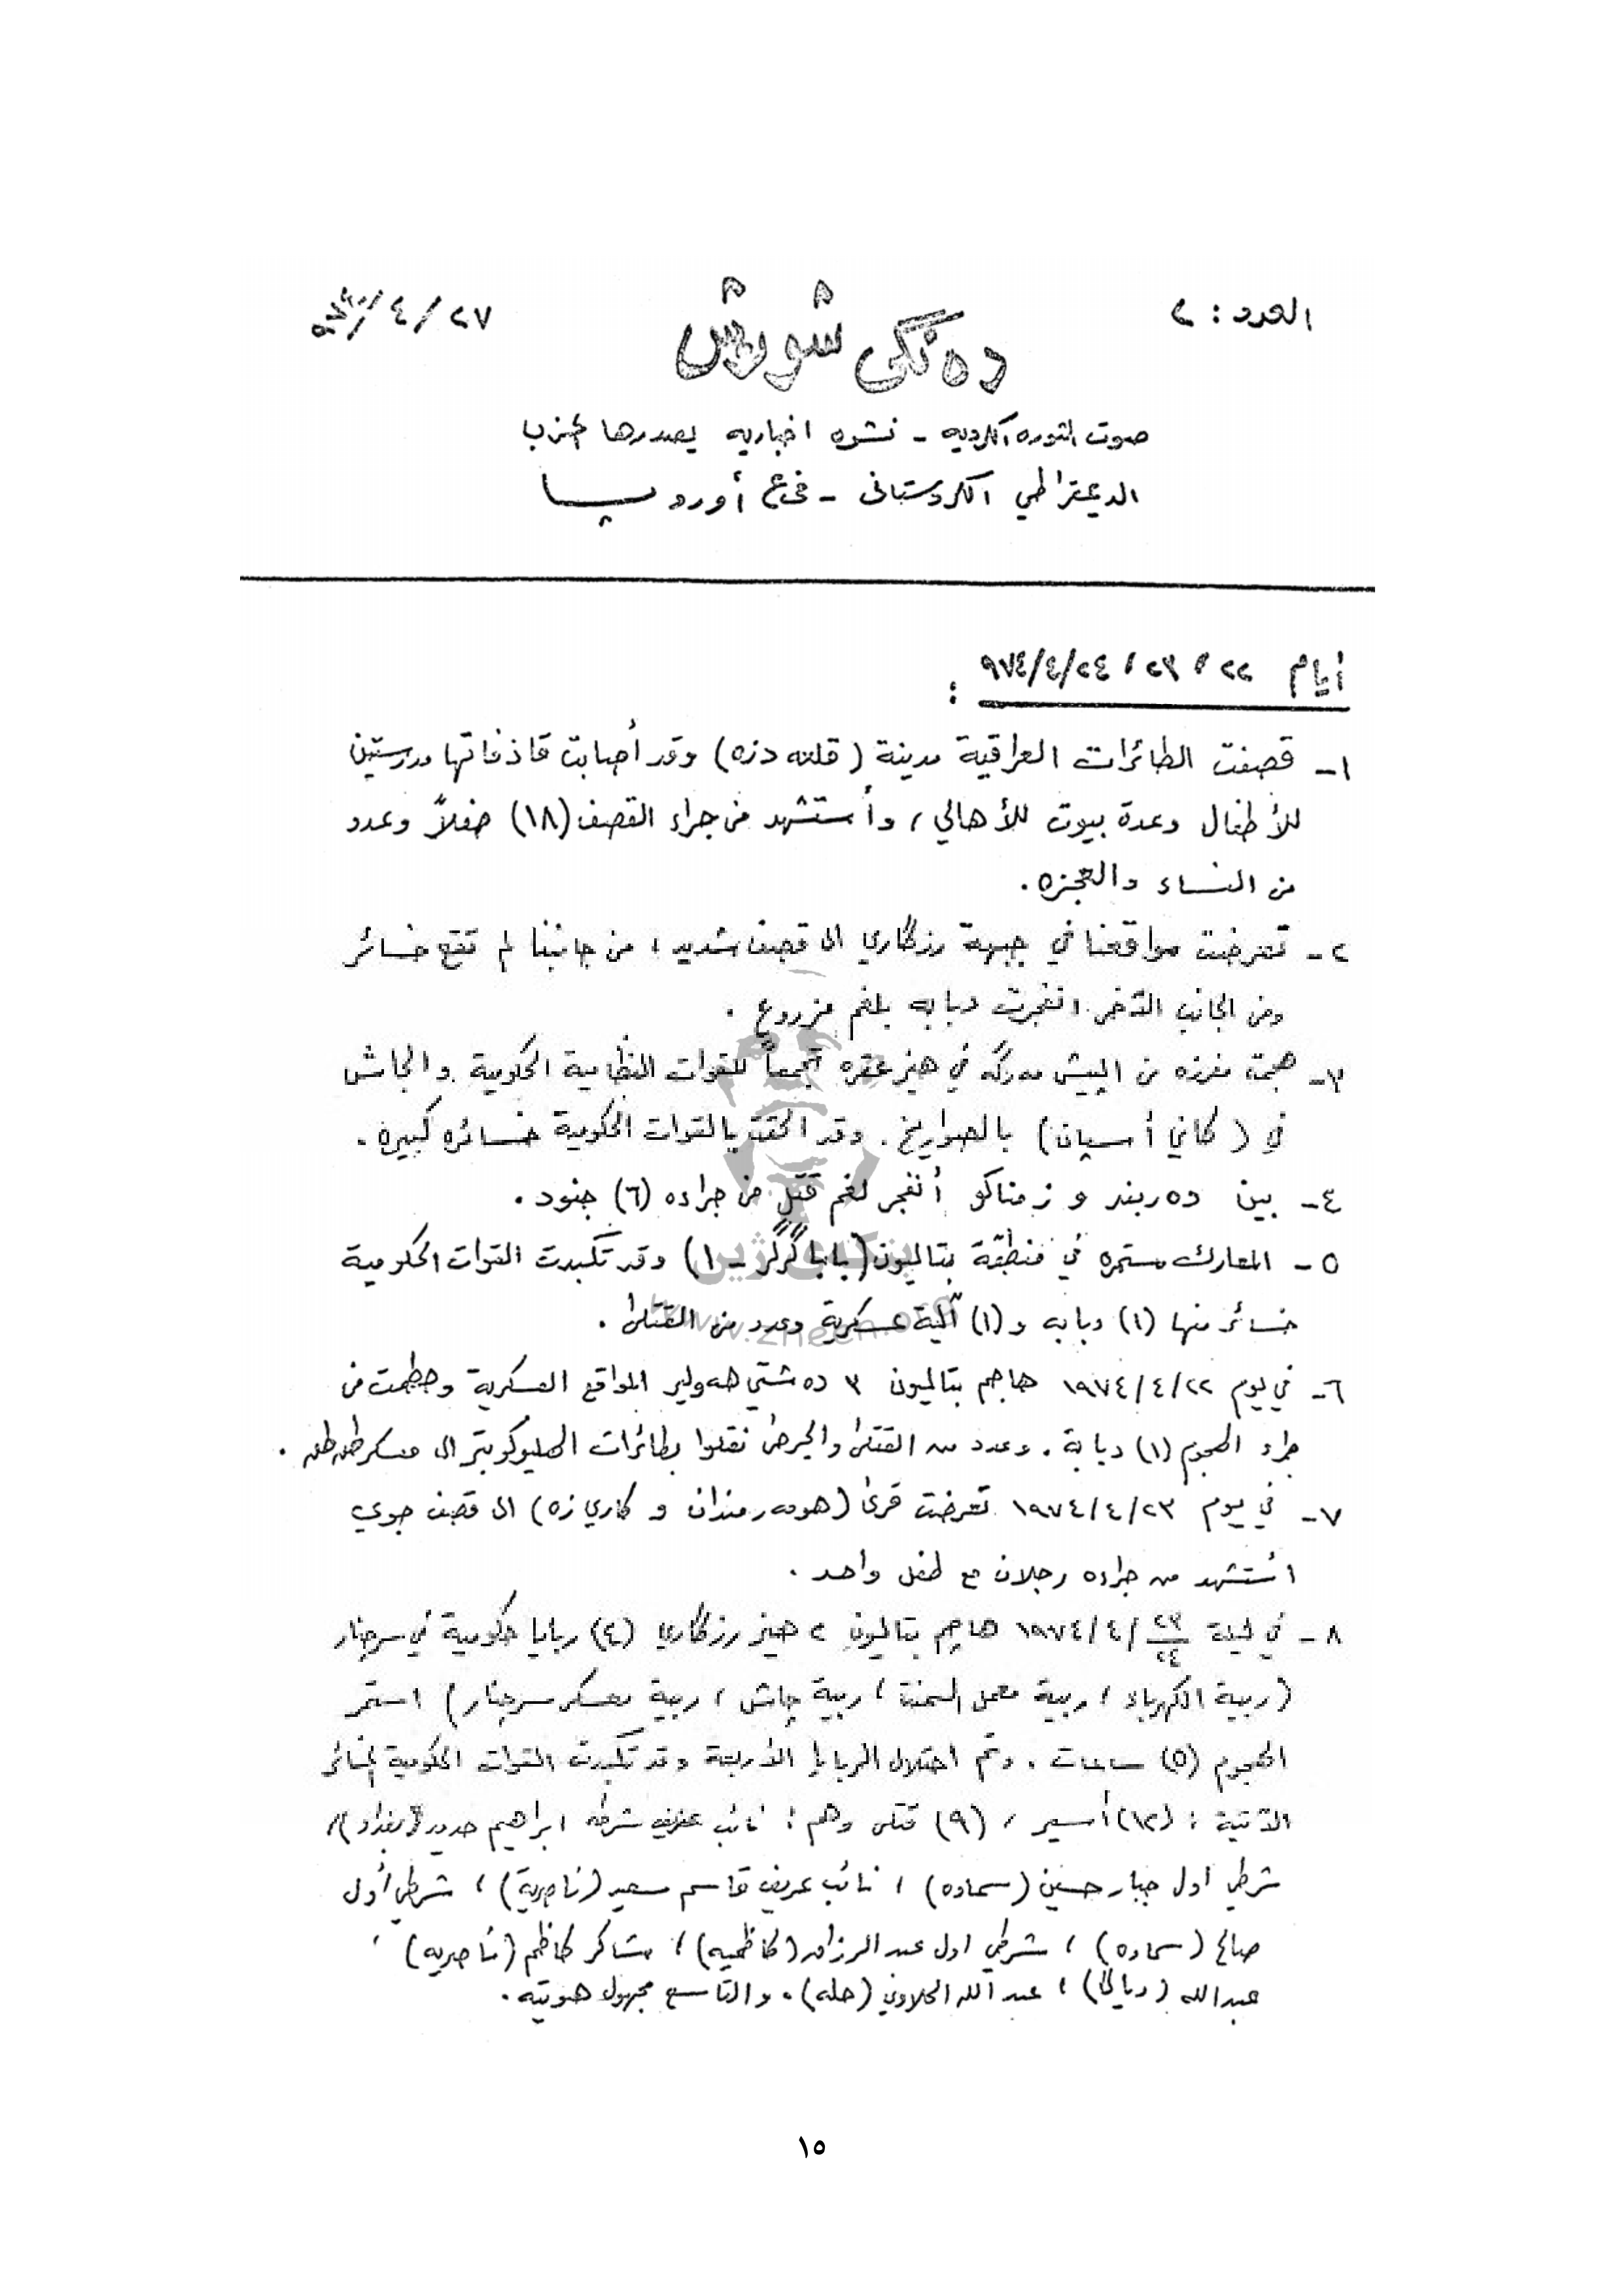 العدد : ٢
٢٧ / ٤ / ٩٧٤
ده نگی شورش
صوت الثوره الكرديه - نشره اخباريه يصدرها الحزب
الديمقراطي الكردستانى - فرع أوروپا
أيام ٢٢ ، ٢٣ ، ٩٧٤/٤/٢٤ :
١- قصفت الطائرات العراقية مدينة ( قلعه دزه ) وقد أصابت قاذفاتها مدرستين
للأطفال وعدة بيوت للأهالي ، وأستشهد من جراء القصف (١٨) طفلاً وعدد
من النساء والعجزه .
٢- تعرضت مواقعنا في جبهة رزگاري الى قصف شديد ، من جانبنا لم تقع خسائر
ومن الجانب الآخر انفجرت دبابه بلغم مزروع .
٣- هجمت مفرزه من الپيش مه رگه في هيز عقره تجمعاً للقوات النظامية الحكومية والجاش
في ( كاني أسپان ) بالصواريخ . وقد الحقت بالقوات الحكومية خسائره كبيره .
٤- بين ده ربند و زمناكو أنفجر لغم قتل من جراءه (٦) جنود .
٥- المعارك مستمره في منطقة بتاليون ( بابا گرگر - ١ ) وقد تكبدت القوات الحكومية
خسائر منها (١) دبابه و (١) آلية عسكرية وعدد من القتلى .
٦- في يوم ١٩٧٤/٤/٢٢ هاجم بتاليون ٣ ده شتي هه ولير المواقع العسكرية وحطمت من
جراء الهجوم (١) دبابة . وعدد من القتلى والجرحى نقلوا بطائرات الهليوكوبتر الى معسكر طه طه .
٧- في يوم ١٩٧٤/٤/٢٣ تعرضت قرى ( هومه رمندان و كاريزه ) الى قصف جوي
استشهد من جراءه رجلان مع طفل واحد .
٨- في ليلة ٢٣/٢٤ /٤/ ١٩٧٤ هاجم بتاليون ٢ هيز رزگاري (٤) ربايا حكومية في سرچنار
( ربية الكهرباء ، ربية معمل السمنت ، ربية جاش ، ربية معسكر سرچنار ) استمر
الهجوم (٥) ساعات . وتم احتلال الربايا الأربعة وقد تكبدت القوات الحكومية الخسائر
الآتية : (١٢) أسير ، (٩) قتلى وهم : نائب عريف شرطه ابراهيم حديد ( بغداد ) ،
شرطي اول جبار حسين ( سماوه ) ، نائب عريف قاسم سعيد ( ناصرية ) ، شرطي أول
صالح ( سماوه ) ، شرطي اول عبد الرزاق ( كاظميه ) ، شاكر كاظم ( ناصريه ) ،
عبدالله ( ديالى ) ، عبد الله الحلاوي ( حله ) . والتاسع مجهول هويته .
بنکەی ژین
www.zheen.org
١٥